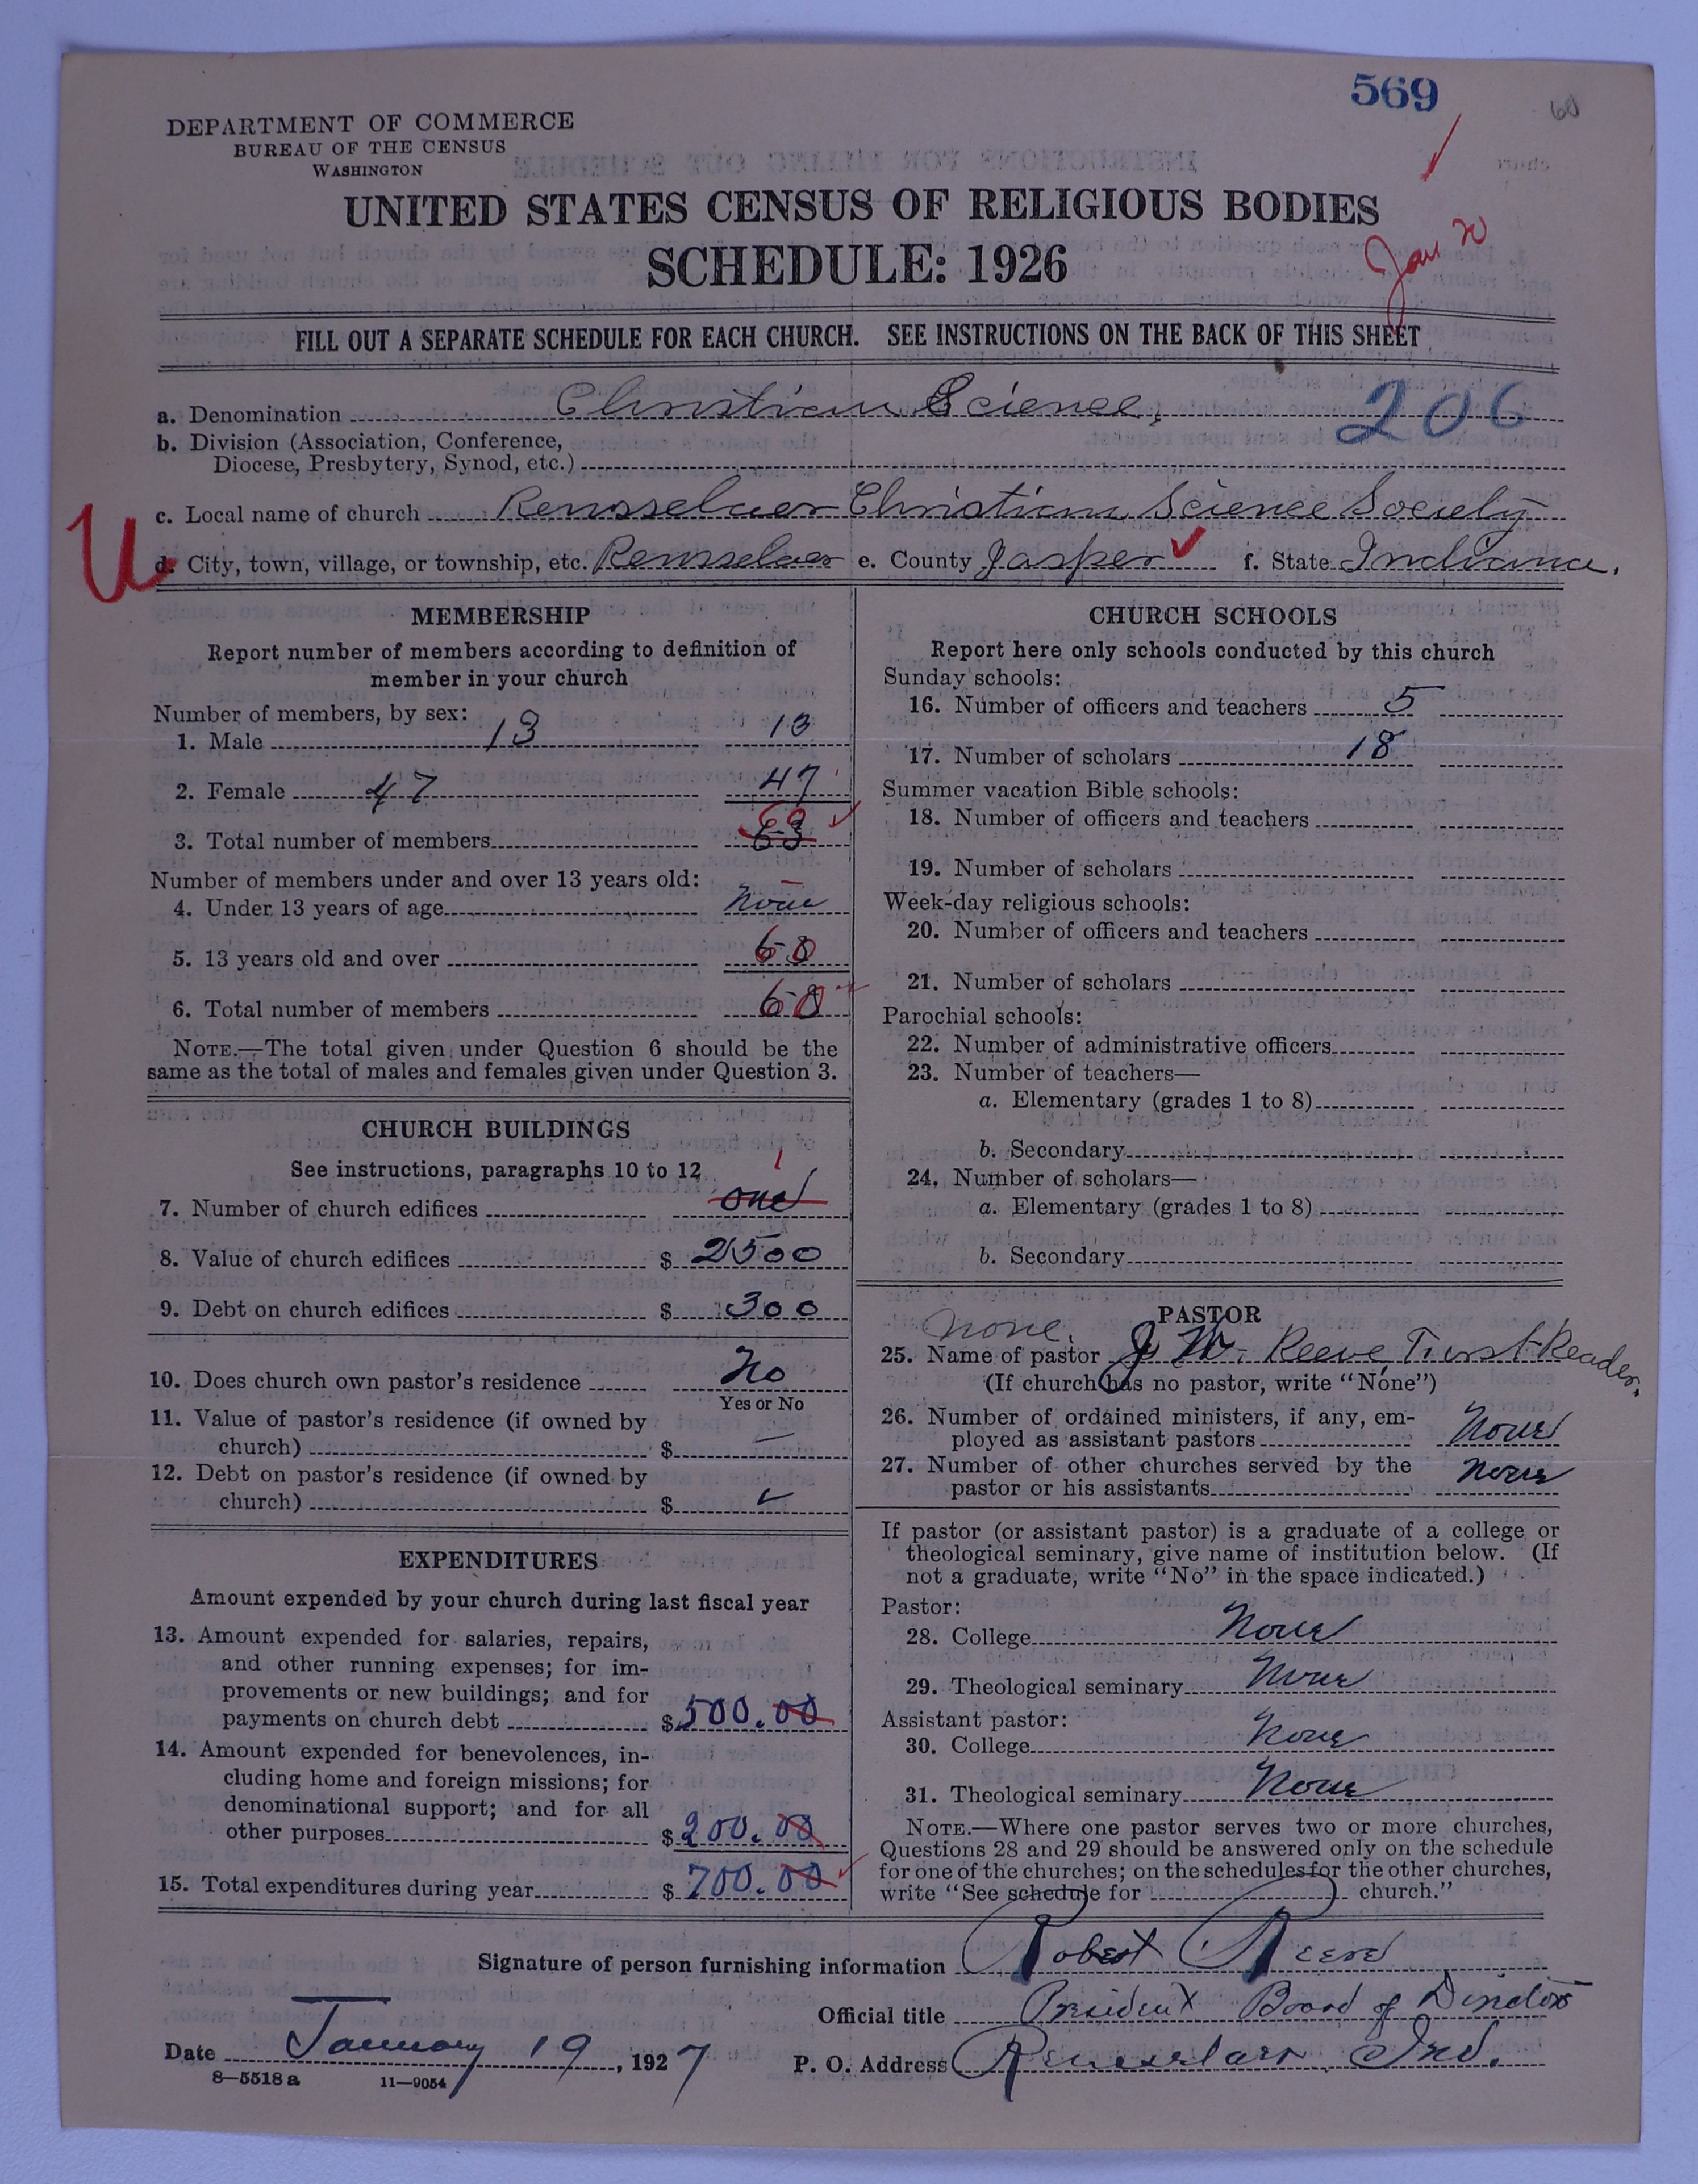 569
60
DEPARTMENT OF COMMERCE
BUREAU OF THE CENSUS
WASHINGTON
UNITED STATES CENSUS OF RELIGIOUS BODIES
SCHEDULE: 1926
Jan 20
FILL OUT A SEPARATE SCHEDULE FOR EACH CHURCH. SEE INSTRUCTIONS ON THE BACK OF THIS SHEET
a. Denomination Christian Science, 206
b. Division (Association, Conference,
Diocese, Presbytery, Synod, etc.)
c. Local name of church Rensselaer Christian Science Society
U
d. City, town, village, or township, etc. Rensselaer e. County Jasper f. State Indiana.
MEMBERSHIP
Report number of members according to definition of
member in your church
Number of members, by sex:
1. Male 13 13
2. Female 47 47
3. Total number of members 60
Number of members under and over 13 years old:
4. Under 13 years of age None
5. 13 years old and over 60
6. Total number of members 60
NOTE.—The total given under Question 6 should be the
same as the total of males and females given under Question 3.
CHURCH BUILDINGS
See instructions, paragraphs 10 to 12
1
7. Number of church edifices one
8. Value of church edifices $ 2500
9. Debt on church edifices $ 300
10. Does church own pastor's residence No
Yes or No
11. Value of pastor's residence (if owned by
church) $ —
12. Debt on pastor's residence (if owned by
church) $
EXPENDITURES
Amount expended by your church during last fiscal year
13. Amount expended for salaries, repairs,
and other running expenses; for im-
provements or new buildings; and for
payments on church debt $ 500.00
14. Amount expended for benevolences, in-
cluding home and foreign missions; for
denominational support; and for all
other purposes $ 200.00
15. Total expenditures during year $ 700.00
CHURCH SCHOOLS
Report here only schools conducted by this church
Sunday schools:
16. Number of officers and teachers 5
17. Number of scholars 18
Summer vacation Bible schools:
18. Number of officers and teachers
19. Number of scholars
Week-day religious schools:
20. Number of officers and teachers
21. Number of scholars
Parochial schools:
22. Number of administrative officers
23. Number of teachers—
a. Elementary (grades 1 to 8)
b. Secondary
24. Number of scholars—
a. Elementary (grades 1 to 8)
b. Secondary
PASTOR
none.
25. Name of pastor J. W. Reeve, First Reader.
(If church has no pastor, write "None")
26. Number of ordained ministers, if any, em-
ployed as assistant pastors None
27. Number of other churches served by the
pastor or his assistants None
If pastor (or assistant pastor) is a graduate of a college or
theological seminary, give name of institution below. (If
not a graduate, write "No" in the space indicated.)
Pastor:
28. College None
29. Theological seminary None
Assistant pastor:
30. College None
31. Theological seminary None
NOTE.—Where one pastor serves two or more churches,
Questions 28 and 29 should be answered only on the schedule
for one of the churches; on the schedules for the other churches,
write "See schedule for church."
Signature of person furnishing information Robert Reeve
Official title President Board of Directors
Date January 19, 1927 P. O. Address Rensselaer Ind.
8—5518 a 11—9054